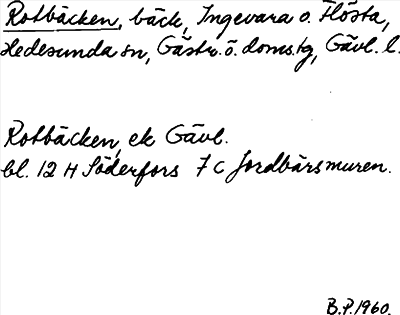 Rotbäcken, bäck, Ingevara o. Hösta,
Hedesunda sn, Gästr. ö. doms.tg, Gävl. l.
Rotbäcken, ek Gävl.
bl. 12 H Söderfors 7 c Jordbärsmuren.
B.P. 1960.